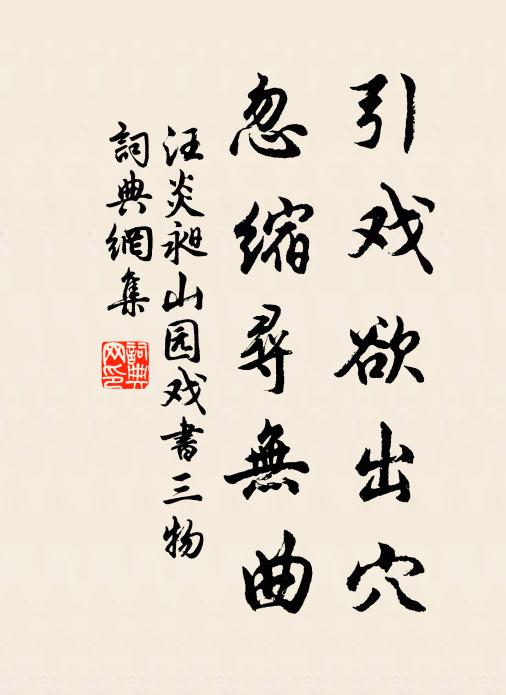 引戏欲出穴
忽缩尋無曲
汪炎昶山园戏書三物
詞典網集
詞典
网印